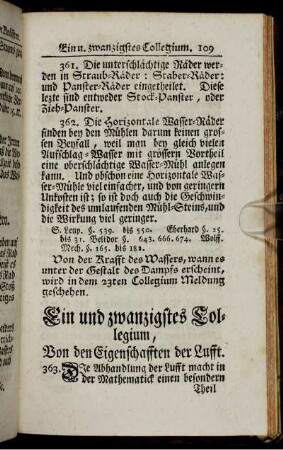 Ein u. zwanzigstes Collegium. 109
361. Die unterschlächtige Räder wer-
den in Straub-Räder: Staber-Räder:
und Panster-Räder eingetheilet. Diese
lezte sind entweder Stock-Panster, oder
Zieh-Panster.
362. Die Horizontale Wasser-Räder
finden bey den Mühlen darum keinen gros-
sen Beyfall, weil man bey gleich vielen
Aufschlag-Wasser mit grössern Vortheil
eine oberschlächtige Wasser-Mühl anlegen
kann. Und obschon eine Horizontale Was-
ser-Mühle viel einfacher, und von geringern
Unkosten ist; so ist doch auch die Geschwin-
digkeit des umlaufenden Mühl-Steins, und
die Wirkung viel geringer.
S. Leup. §. 539. bis 550. Eberhard §. 25.
bis 31. Belidor §. 643. 666. 674. Wolff.
Mech. §. 165. bis 182.
Von der Krafft des Wassers, wann es
unter der Gestalt des Dampfs erscheint,
wird in dem 23ten Collegium Meldung
geschehen.
Ein und zwanzigstes Col-
legium,
Von den Eigenschafften der Lufft.
363. DIe Abhandlung der Lufft macht in
der Mathematick einen besondern
Theil